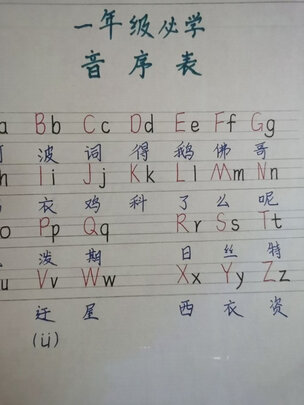 一年级必学
音序表
a Bb Cc Dd Ee Ff Gg
波 词 得 鹅 佛 哥
h Ii Jj Kk Ll Mm Nn
衣 鸡 科 了 么 呢
o Pp Qq Rr Ss Tt
泼 期 日 丝 特
u Vv Ww Xx Yy Zz
迂 屋 西 衣 资
(ü)